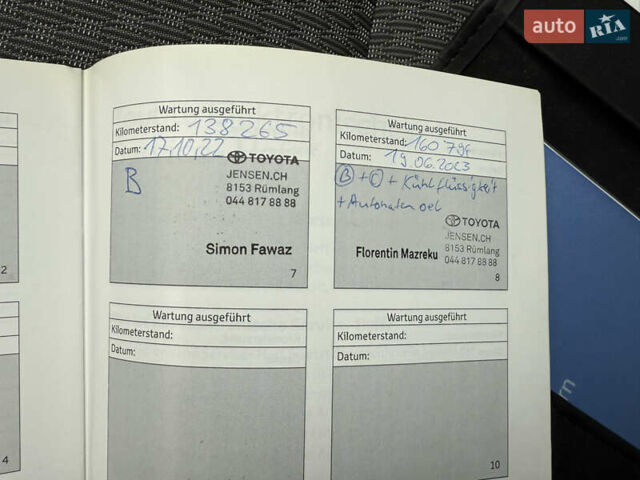 auto RIA .com
Wartung ausgeführt
Kilometerstand: 138 265
Datum: 17.10.22
TOYOTA
JENSEN.CH
8153 Rümlang
044 817 88 88
B
Simon Fawaz
7
Wartung ausgeführt
Kilometerstand: 160
Datum: 19 06.2023
B + C + Kühlflüssigkeit
+ Automaten oel
TOYOTA
JENSEN.CH
8153 Rümlang
044 817 88 88
Florentin Mazreku
8
2
Wartung ausgeführt
Kilometerstand:
Datum:
Wartung ausgeführt
Kilometerstand:
Datum:
10
4